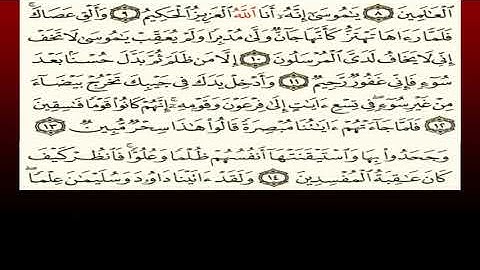 ٱلْعَٰلَمِينَ ٨ يَٰمُوسَىٰٓ إِنَّهُۥٓ أَنَا ٱللَّهُ ٱلْعَزِيزُ ٱلْحَكِيمُ ٩ وَأَلْقِ عَصَاكَ ۚ
فَلَمَّا رَءَاهَا تَهْتَزُّ كَأَنَّهَا جَآنٌّ وَلَّىٰ مُدْبِرًا وَلَمْ يُعَقِّبْ ۚ يَٰمُوسَىٰ لَا تَخَفْ
إِنِّى لَا يَخَافُ لَدَىَّ ٱلْمُرْسَلُونَ ١٠ إِلَّا مَن ظَلَمَ ثُمَّ بَدَّلَ حُسْنًۢا بَعْدَ
سُوٓءٍ فَإِنِّى غَفُورٌ رَّحِيمٌ ١١ وَأَدْخِلْ يَدَكَ فِى جَيْبِكَ تَخْرُجْ بَيْضَآءَ
مِنْ غَيْرِ سُوٓءٍ ۖ فِى تِسْعِ ءَايَٰتٍ إِلَىٰ فِرْعَوْنَ وَقَوْمِهِۦٓ ۚ إِنَّهُمْ كَانُوا۟ قَوْمًا فَٰسِقِينَ
١٢ فَلَمَّا جَآءَتْهُمْ ءَايَٰتُنَا مُبْصِرَةً قَالُوا۟ هَٰذَا سِحْرٌ مُّبِينٌ ١٣
وَجَحَدُوا۟ بِهَا وَٱسْتَيْقَنَتْهَآ أَنفُسُهُمْ ظُلْمًا وَعُلُوًّا ۚ فَٱنظُرْ كَيْفَ
كَانَ عَٰقِبَةُ ٱلْمُفْسِدِينَ ١٤ وَلَقَدْ ءَاتَيْنَا دَاوُۥدَ وَسُلَيْمَٰنَ عِلْمًا ۖ